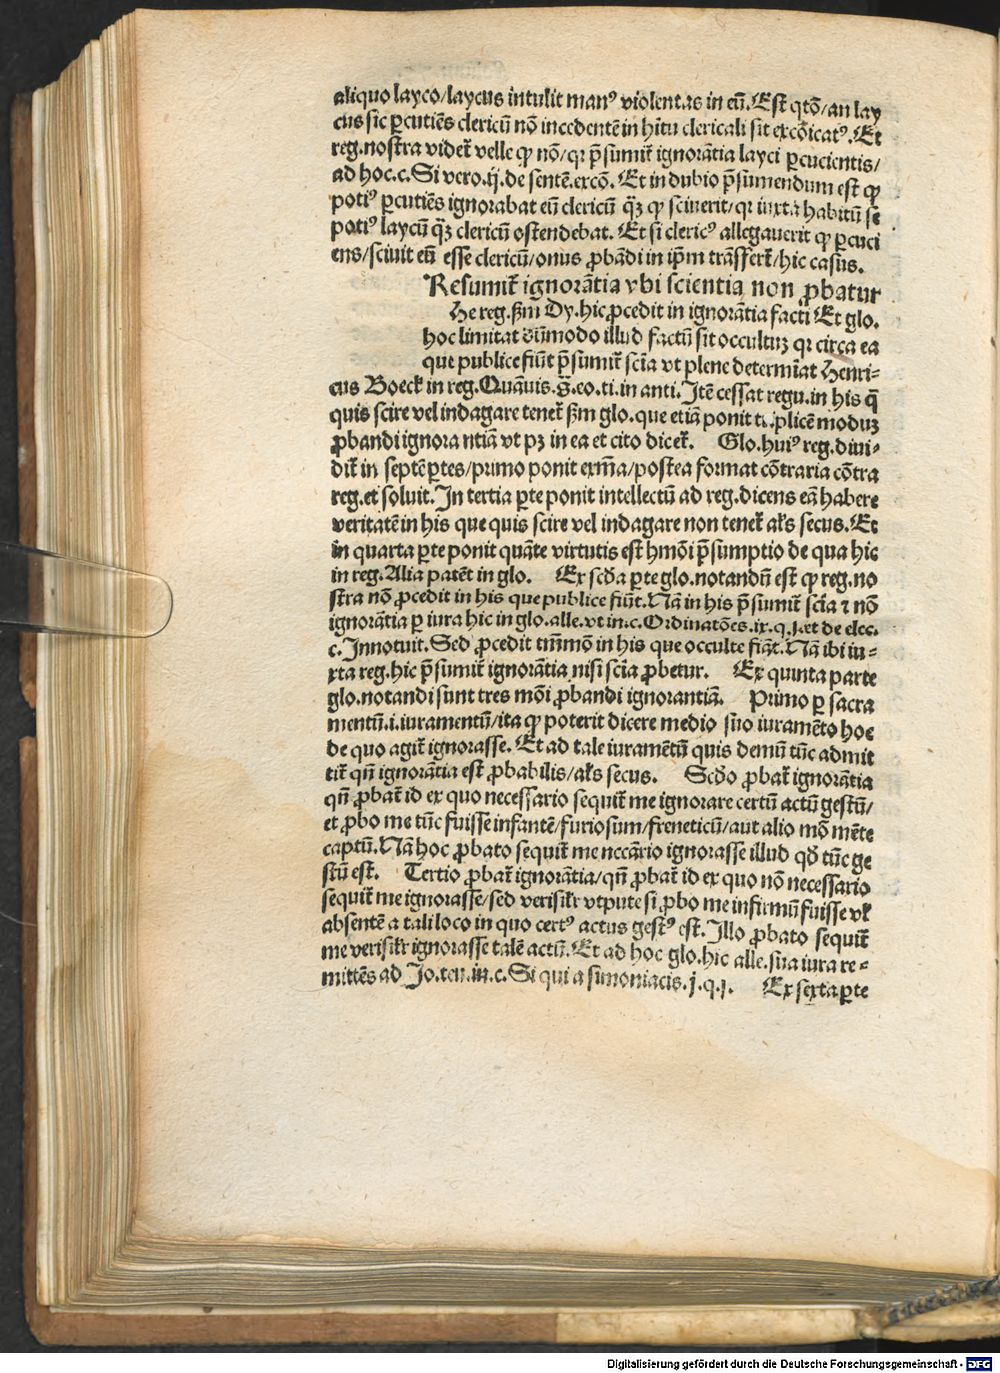 aliquo layco/laycus intulit manꝰ violentas in eū. Est q̄tō/an lay
cus sic ꝑcutiēs clericū nō incedentē in hītu clericali sit excōicatꝰ. Et
reg. nostra videt̄ velle ꝙ nō/qr p̄sumit̄ ignorātia layci ꝑcucientis/
ad hoc. c. Si vero. ij. de sentē. excō. Et in dubio p̄sumendum est ꝙ
potiꝰ ꝑcutiēs ignorabat eū clericū q̄ꝫ ꝙ sciuerit/qr iuxta habitū se
potiꝰ laycū q̄ꝫ clericū ostendebat. Et si clericꝰ allegauerit ꝙ ꝑcuci
ens/sciuit eū esse clericū/onus ꝓbādi in ip̄m trāsfert̄/hic casus.
Resumit̄ ignorātia vbi scientia non ꝓbatur
He reg. ẜm Dy. hic ꝓcedit in ignorātia facti Et glo.
hoc limitat dūmodo illud factū sit occultuꝫ qr circa ea
que publice fiūt p̄sumit̄ scīa vt plene determīat Henri-
cus Boeck in reg. Quāuis. ff. eo. ti. in anti. Itē cessat regu. in his q̄
quis scire vel indagare tenet̄ ẜm glo. que etiā ponit triplicē moduꝫ
ꝓbandi ignorantiā vt pꝫ in ea et cito dicet̄. Glo. huiꝰ reg. diui-
dit̄ in septē ꝑtes/primo ponit exm̄a/postea format cōtraria cōtra
reg. et soluit. In tertia ꝑte ponit intellectū ad reg. dicens eā habere
veritatē in his que quis scire vel indagare non tenet̄ al̄s secus. Et
in quarta ꝑte ponit quāte virtutis est hmōi p̄sumptio de qua hic
in reg. Alia patēt in glo. Ex scd̄a ꝑte glo. notandū est ꝙ reg. no
stra nō ꝓcedit in his que publice fiūt. Nā in his p̄sumit̄ scīa ⁊ nō
ignorātia ꝑ iura hic in glo. alle. vt in. c. Ordinatōes. ix. q. j. et de elec.
c. Innotuit. Sed ꝓcedit tm̄mō in his que occulte fiāt. Nā ibi iu-
xta reg. hic p̄sumit̄ ignorātia nisi scīa ꝓbetur. Ex quinta parte
glo. notandi sunt tres mōi ꝓbandi ignorantiā. Primo ꝑ sacra
mentū. i. iuramentū/ita ꝙ poterit dicere medio suo iuramēto hoc
de quo agit̄ ignorasse. Et ad tale iuramētū quis demū tūc admit
tit̄ qn̄ ignorātia est ꝓbabilis/al̄s secus. Scd̄o ꝓbat̄ ignorātia
qn̄ ꝓbat̄ id ex quo necessario sequit̄ me ignorare certū actū gestū/
et ꝓbo me tūc fuisse infantē/furiosum/freneticū/aut alio mō mēte
captū. Nā hoc ꝓbato sequit̄ me nccārio ignorasse illud qd̄ tūc ge
stū est. Tertio ꝓbat̄ ignorātia/qn̄ ꝓbat̄ id ex quo nō necessario
sequit̄ me ignorasse/sed verisil̄r vtpute si ꝓbo me infirmū fuisse vl̄
absentē a tali loco in quo certꝰ actus gestꝰ est. Illo ꝓbato sequit̄
me verisil̄r ignorasse talē actū. Et ad hoc glo. hic alle. sua iura re-
mittēs ad Jo. teu. in. c. Si qui a simoniacis. j. q. j. Ex sexta ꝑte
Digitalisierung gefördert durch die Deutsche Forschungsgemeinschaft - DFG